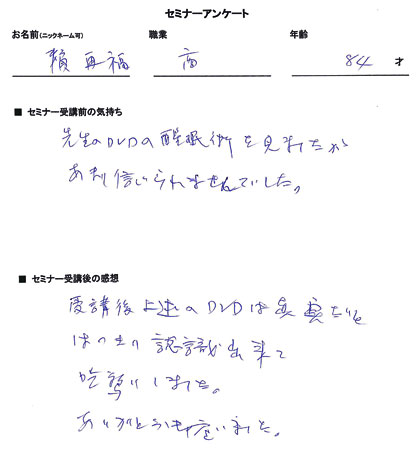 セミナーアンケート
お名前(ニックネーム可) 職業 年齢
賴 再福 商 84 才
■ セミナー受講前の気持ち
先生のDVDの醒眠術を見ましたが
あまり信じられませんでした。
■ セミナー受講後の感想
受講後上述のDVDは真実だと
はっきり認識が出来て
吃驚いしました。
ありがとう御座いました。